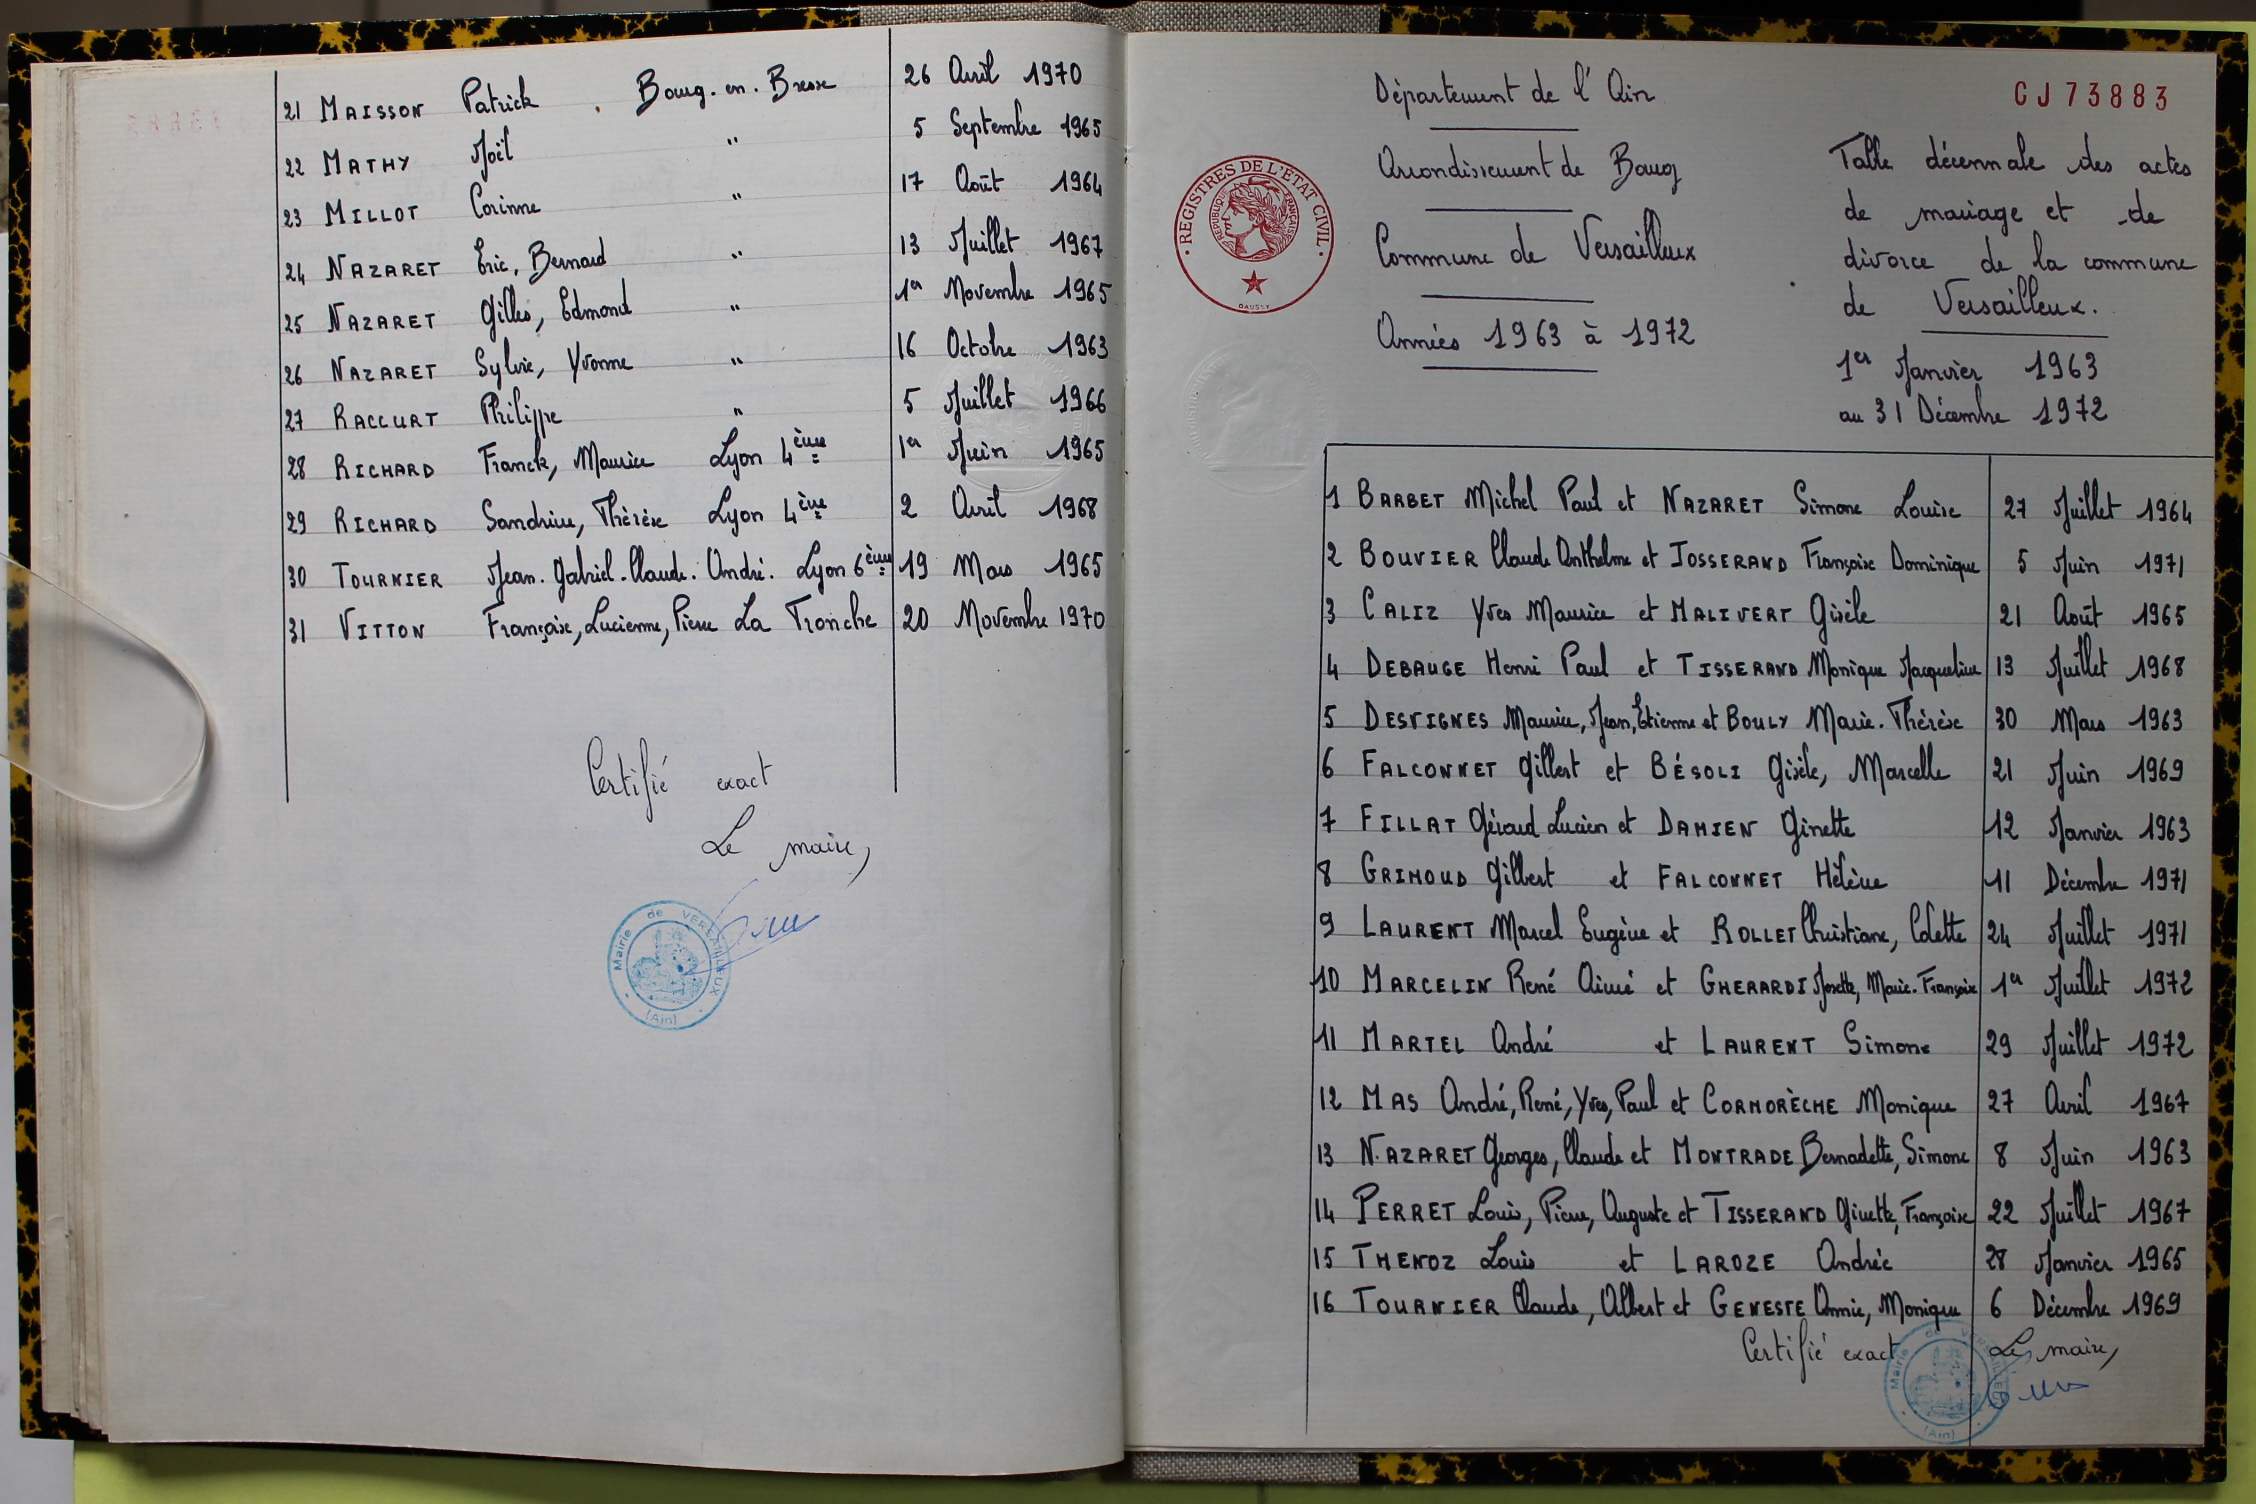 21 MAISSON Patrick . Bourg. en. Bresse 26 Avril 1970
22 MATHY Joël " 5 Septembre 1965
23 MILLOT Corinne " 17 Août 1964
24 NAZARET Eric, Bernard " 13 Juillet 1967
25 NAZARET Gilles, Edmond " 1er Novembre 1965
26 NAZARET Sylvie, Yvonne " 16 Octobre 1963
27 RACCURT Philippe " 5 Juillet 1966
28 RICHARD Franck, Maurice Lyon 4ème 1er Juin 1965
29 RICHARD Sandrine, Thérèse Lyon 4ème 2 Avril 1968
30 TOURNIER Jean. Gabriel. Claude. André. Lyon 6ème 19 Mars 1965
31 VITTON Françoise, Lucienne, Pierre La Tronche 20 Novembre 1970
Certifié exact
Le maire,
Mairie de VERSAILLEUX
(Ain)
Département de l'Ain
CJ73883
Arrondissement de Bourg
Commune de Versailleux
Années 1963 à 1972
REGISTRES DE L'ETAT CIVIL
REPUBLIQUE FRANÇAISE
DAUSSY
Table décennale des actes
de mariage et de
divorce de la commune
de Versailleux.
1er Janvier 1963
au 31 Décembre 1972
1 BARBET Michel Paul et NAZARET Simone Louise 27 Juillet 1964
2 BOUVIER Claude Anthelme et JOSSERAND Françoise Dominique 5 Juin 1971
3 CALIZ Yves Maurice et MALIVERT Gisèle 21 Août 1965
4 DEBAUGE Henri Paul et TISSERAND Monique Jacqueline 13 Juillet 1968
5 DESVIGNES Maurice, Jean, Etienne et BOULY Marie. Thérèse 30 Mars 1963
6 FALCONNET Gilbert et BÉSOLI Gisèle, Marcelle 21 Juin 1969
7 FILLAT Géraud Lucien et DAMIEN Ginette 12 Janvier 1963
8 GRIMOUD Gilbert et FALCONNET Hélène 11 Décembre 1971
9 LAURENT Marcel Eugène et ROLLET Christiane, Colette 24 Juillet 1971
10 MARCELIN René Aimé et GHERARDI Josette, Marie. Françoise 1er Juillet 1972
11 MARTEL André et LAURENT Simone 29 Juillet 1972
12 MAS André, René, Yves, Paul et CORMORÈCHE Monique 27 Avril 1967
13 NAZARET Georges, Claude et MONTRADE Bernadette, Simone 8 Juin 1963
14 PERRET Louis, Pierre, Auguste et TISSERAND Ginette, Françoise 22 Juillet 1967
15 THENOZ Louis et LAROZE Andrée 28 Janvier 1965
16 TOURNIER Claude, Albert et GENESTE Annie, Monique 6 Décembre 1969
Certifié exact Le maire,
Mairie de VERSAILLEUX
(Ain)